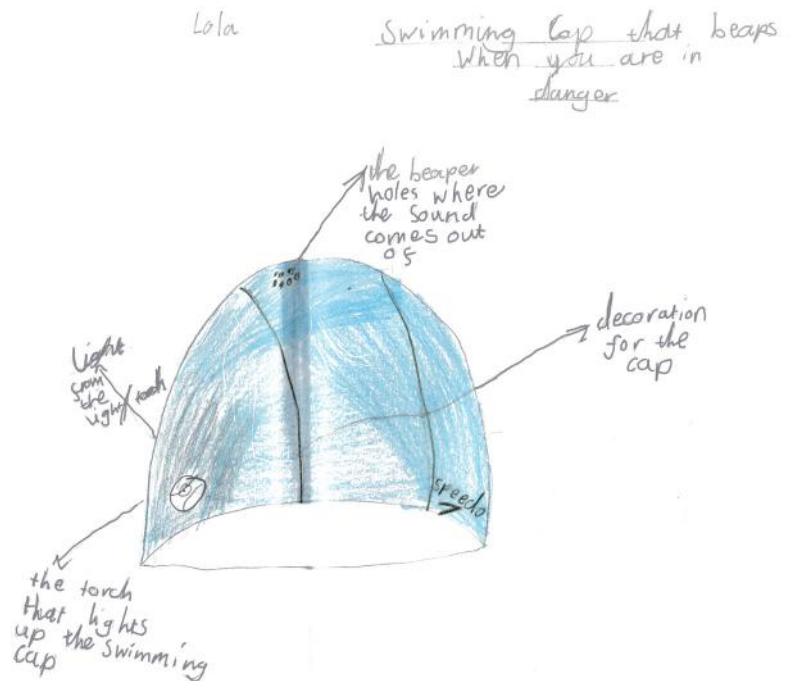 Lola
Swimming Cap that beaps
when you are in
danger
the beaper
holes where
the sound
comes out
of
decoration
for the
cap
Light
from
the
light/torch
speedo
the torch
that lights
up the swimming
cap